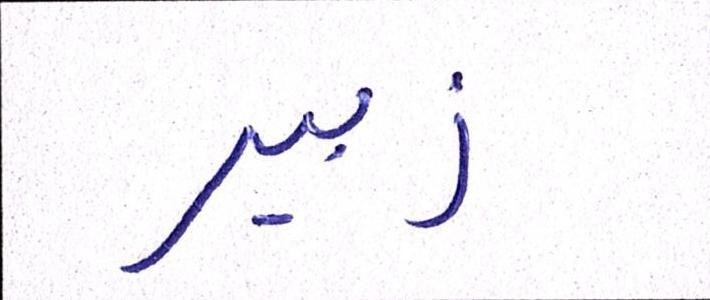 زبير